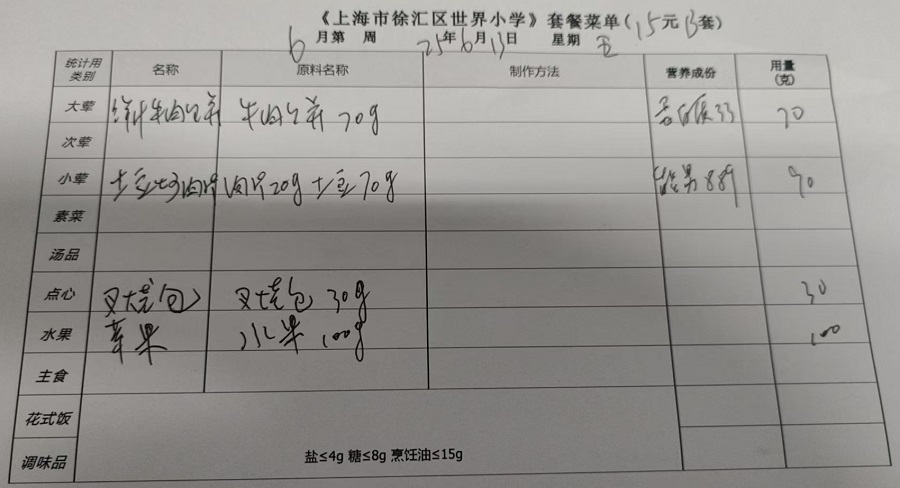 《上海市徐汇区世界小学》套餐菜单(15元B套)
6月第 周 25年6月13日 星期五
统计用类别 名称 原料名称 制作方法 营养成份 用量(克)
大荤 牛肉 牛肉 70g 蛋白质33 70
次荤
小荤 土豆烧肉片 肉片20g 土豆70g 889 90
素菜
汤品
点心 叉烧包 叉烧包 30g 30
水果 苹果 水果 100g 100
主食
花式饭
调味品 盐≤4g 糖≤8g 烹饪油≤15g